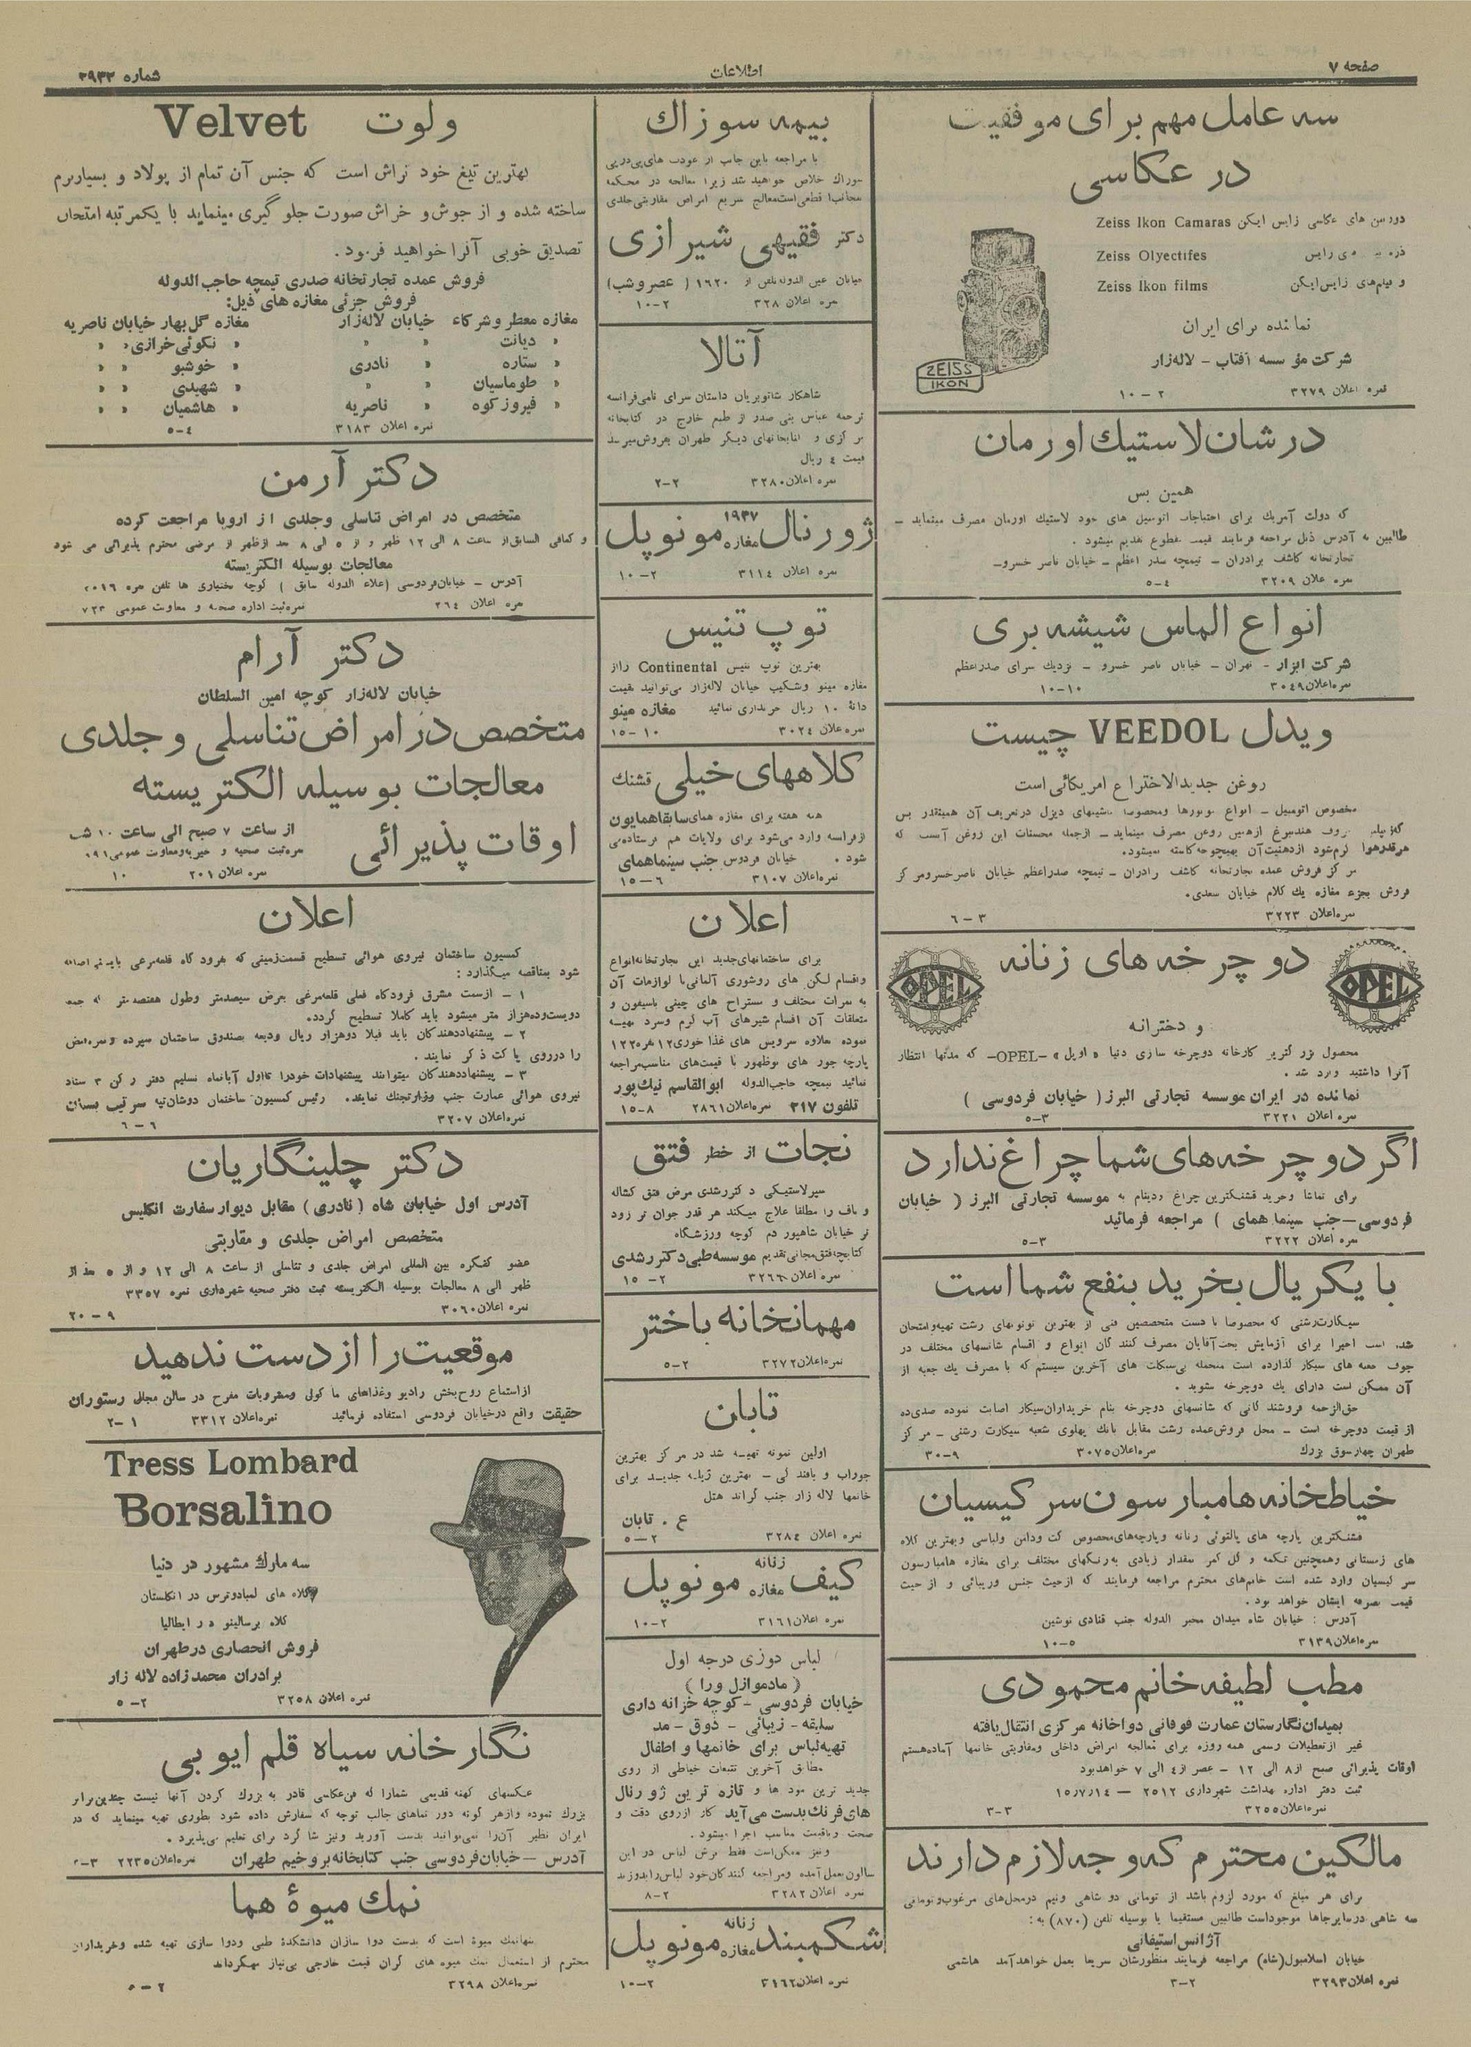 صفحه ۷
اطلاعات
شماره ۲۹۳۲
سه عامل مهم برای موفقیت
در عکاسی
دوربین های عکاسی زایس ایکن Zeiss Ikon Camaras
Zeiss Olyectifes
و فیلم‌های زایس ایکن Zeiss Ikon films
نماینده برای ایران
شرکت مؤسسه آفتاب - لاله‌زار
نمره اعلان ۳۲۷۹ ۲-۱۰
ZEISS
IKON
در شان لاستیك اورمان
همین بس
که دولت آمریك برای احتیاجات اتومبیل های خود لاستیك اورمان مصرف مینماید -
طالبین به آدرس ذیل مراجعه فرمایند قیمت مقطوع تقدیم میشود.
تجارتخانه کاشف برادران - تیمچه صدر اعظم - خیابان ناصر خسرو-
نمره اعلان ۳۲۰۹ ۴-۵
انواع الماس شیشه بری
شرکت ابزار - تهران - خیابان ناصر خسرو - نزدیك سرای صدراعظم
نمره اعلان ۳۰۴۹ ۱۰-۱۰
ویدل VEEDOL چیست
روغن جدیدالاختراع امریکائی است
هرقدر هوا گرم شود از دهنیت آن بهیچوجه کاسته نمیشود.
مرکز فروش عمده تجارتخانه کاشف برادران - تیمچه صدراعظم خیابان ناصر خسرو مرکز
فروش بجزء مغازه یك کلام خیابان سعدی.
نمره اعلان ۳۲۲۳ ۳-۶
دو چرخه های زنانه
OPEL
OPEL
و دخترانه
محصول بزرگترین کارخانه دوچرخه سازی دنیا « اوپل » -OPEL- که مدتها انتظار
آنرا داشتید وارد شد.
نماینده در ایران موسسه تجارتی البرز ( خیابان فردوسی )
نمره اعلان ۳۲۲۱ ۳-۵
اگر دو چرخه‌های شما چراغ ندارد
برای تماشا و خرید قشنگترین چراغ و دینام به موسسه تجارتی البرز ( خیابان
فردوسی - جنب سینما همای ) مراجعه فرمائید
نمره اعلان ۳۲۲۲ ۳-۵
با یکریال بخرید بنفع شما است
سیگارت رشتی که مخصوصا با دست متخصصین فنی از بهترین توتونهای رشت تهیه و امتحان
شده است اخیرا برای آزمایش بخت آقایان مصرف کنندگان انواع و اقسام شانسهای مختلف در
جوف جعبه های سیگار گذارده است منجمله بی‌سیکلت های آخرین سیستم که با مصرف یك جعبه از
آن ممکن است دارای یك دوچرخه شوید.
حق‌الزحمه فروشندگانی که شانسهای دوچرخه بنام خریداران سیگار اصابت نموده صدی ده
از قیمت دوچرخه است - محل فروش عمده رشت مقابل بانك پهلوی شعبه سیگارت رشتی - مرکز
طهران چهارسوق بزرك نمره اعلان ۳۰۷۵ ۹-۳۰
خیاطخانه هامبارسون سرکیسیان
قشنگترین پارچه های پالتوئی زنانه و پارچه‌های مخصوص کت و دامن و لباسی و بهترین کلاه
های زمستانی و همچنین تکمه و گل کمر مقدار زیادی به رنگهای مختلف برای مغازه هامبارسون
سرکیسیان وارد شده است خانم‌های محترم مراجعه فرمایند که از حیث جنس و زیبائی و از حیث
قیمت بصرفه ایشان خواهد بود.
آدرس : خیابان شاه میدان مخبر الدوله جنب قنادی نوشین
نمره اعلان ۳۱۳۹ ۵-۱۰
مطب لطیفه خانم محمودی
بمیدان نگارستان عمارت فوقانی دواخانه مرکزی انتقال یافته
غیر از تعطیلات رسمی همه روزه برای معالجه امراض داخلی و مقاربتی خانمها آماده هستم
اوقات پذیرائی صبح از ۸ الی ۱۲ - عصر از ۴ الی ۷ خواهد بود
ثبت دفتر اداره بهداشت شهرداری ۲۵۱۲ - ۱۵/۷/۱۴
نمره اعلان ۳۲۵۵ ۳-۳
مالکین محترم که وجه لازم دارند
برای هر مبلغ که مورد لزوم باشد از تومانی دو شاهی و نیم در محل‌های مرغوب و تومانی
سه شاهی در سایر جاها موجود است طالبین مستقیما یا بوسیله تلفن (۸۷۰) به :
آژانس استیفانی
خیابان اسلامبول (شاه) مراجعه فرمایند منظورشان سریعا بعمل خواهد آمد هاشمی
نمره اعلان ۳۲۹۳ ۲-۳
بیمه سوزاك
با مراجعه باین جانب از عودت های پی‌درپی
سوزاك خلاص خواهید شد زیرا معالجه در محکمه
قطعی است معالج سریع امراض مقاربتی جلدی
دکتر فقیهی شیرازی
خیابان عین الدوله تلفن ۱۶۲۰ ( عصر و شب )
نمره اعلان ۳۲۸ ۲-۱۰
آتالا
شاهکار شاتوبریان داستان سرای نامی فرانسه
ترجمه عباس بنی صدر از طبع خارج در کتابخانه
مرکزی و کتابخانهای دیگر طهران بفروش میرسد
قیمت ۴ ریال
نمره اعلان ۳۲۸۰ ۲-۲
ژورنال ۱۹۳۷ مغازه مونوپل
نمره اعلان ۳۱۱۴ ۲-۱۰
توپ تنیس
بهترین توپ تنیس Continental را از
مغازه مینو و شکیب خیابان لاله‌زار می‌توانید بقیمت
دانهٔ ۱۰ ریال خریداری نمائید مغازه مینو
نمره اعلان ۳۰۲۴ ۱۰-۱۵
کلاههای خیلی قشنك
همه هفته برای مغازه همای سابقا همایون
از فرانسه وارد می‌شود برای ولایات هم فرستاده می
شود. خیابان فردوسی جنب سینما همای
نمره اعلان ۳۱۰۷ ۶-۱۵
اعلان
برای ساختمانهای جدید این تجارتخانه انواع
و اقسام لگن های روشوری آلمانی با لوازمات آن
به نمرات مختلف و مستراح های چینی باسیفون و
متعلقات آن اقسام شیرهای آب گرم و سرد تهیه
نموده بعلاوه سرویس های غذا خوری ۱۲ نفره ۱۲۲
پارچه جور های نوظهور با قیمت‌های مناسب مراجعه
نمائید تیمچه حاجب‌الدوله ابوالقاسم نیك‌پور
تلفون ۳۱۷ نمره اعلان ۲۸۶۱ ۸-۱۵
نجات از خطر فتق
سیر لاستیکی دکتر رشدی مرض فتق کشاله
و ناف را مطلقا علاج میکند هر قدر جوان تر زود
تر خیابان شاهپور دم کوچه ورزشگاه
کتابچه فتق مجانی تقدیم موسسه طبی دکتر رشدی
۲-۱۵
مهمانخانه باختر
نمره اعلان ۳۲۷۲ ۲-۵
تابان
اولین نمونه تهیه شد در مرکز بهترین
جوراب و بافندگی - بهترین ژیله جدید برای
خانمها لاله زار جنب گراند هتل
ع. تابان
نمره اعلان ۳۲۸۴ ۲-۵
کیف زنانه مغازه مونوپل
نمره اعلان ۳۱۶۱ ۲-۱۰
لباس دوزی درجه اول
( مادموازل ورا )
خیابان فردوسی - کوچه خزانه داری
سلیقه - زیبائی - ذوق - مد
تهیه لباس برای خانمها و اطفال
مطابق آخرین تتبعات خیاطی از روی
جدید ترین مود ها و تازه ترین ژورنال
های فرنك بدست می‌آید کار از روی دقت و
صحت و با قیمت مناسب اجرا میشود.
و نیز ممکن است فقط برش لباس در این
سالون بعمل آمده و مراجعه کنندگان خود لباس را بدوزند
نمره اعلان ۳۲۸۲ ۲-۸
شکمبند زنانه مغازه مونوپل
نمره اعلان ۳۱۶۲ ۲-۱۰
ولوت Velvet
بهترین تیغ خود تراش است که جنس آن تمام از پولاد و بسیار نرم
ساخته شده و از جوش و خراش صورت جلوگیری مینماید با یکمرتبه امتحان
تصدیق خوبی آنرا خواهید فرمود.
فروش عمده تجارتخانه صدری تیمچه حاجب الدوله
فروش جزئی مغازه های ذیل:
مغازه معطر و شرکاء خیابان لاله‌زار مغازه گل بهار خیابان ناصریه
« دیانت « « « نکوئی خرازی « «
« ستاره « نادری « خوشبو « «
« طوماسیان « « « شهیدی « «
« فیروزکوه « ناصریه « هاشمیان « «
نمره اعلان ۳۱۸۳ ۴-۵
دکتر آرمن
متخصص در امراض تناسلی و جلدی از اروپا مراجعت کرده
و کمافی السابق از ساعت ۸ الی ۱۲ ظهر و از ۵ الی ۸ بعد از ظهر از مرضی محترم پذیرائی می شود
معالجات بوسیله الکتریسته
آدرس - خیابان فردوسی (علاء الدوله سابق ) کوچه بختیاری ها تلفن نمره ۲۰۱۶
نمره اعلان ۲۶۴ نمره ثبت اداره صحیه و معاونت عمومی ۷۲۳
دکتر آرام
خیابان لاله‌زار کوچه امین السلطان
متخصص در امراض تناسلی و جلدی
معالجات بوسیله الکتریسته
اوقات پذیرائی از ساعت ۷ صبح الی ساعت ۱۰ شب
نمره ثبت صحیه و خیریه و معاونت عمومی ۱۹۱
نمره اعلان ۲۰۱ ۱۰
اعلان
کمسیون ساختمان نیروی هوائی تسطیح قسمت زمینی که بفرودگاه قلعه‌مرغی باید اضافه
شود بمناقصه میگذارد :
۱ - از سمت مشرق فرودگاه فعلی قلعه‌مرغی بعرض سیصد متر و طول هفتصد متر که جمعا
دویست و ده هزار متر میشود باید کاملا تسطیح گردد.
۲ - پیشنهاد دهندگان باید قبلا دو هزار ریال ودیعه بصندوق ساختمان سپرده و نمره قبض
را در روی پاکت ذکر نمایند.
۳ - پیشنهاد دهندگان میتوانند پیشنهادات خود را تا اول آبانماه تسلیم دفتر رکن ۳ ستاد
نیروی هوائی عمارت جنب وزارت جنك نمایند. رئیس کمسیون ساختمان دوشان‌تپه سرتیب بستان
نمره اعلان ۳۲۰۷ ۶-۶
دکتر چلینگاریان
آدرس اول خیابان شاه (نادری) مقابل دیوار سفارت انگلیس
متخصص امراض جلدی و مقاربتی
عضو کنگره بین المللی امراض جلدی و تناسلی از ساعت ۸ الی ۱۲ و از ۵ بعد از
ظهر الی ۸ معالجات بوسیله الکتریسته ثبت دفتر صحیه شهرداری نمره ۳۳۵۷
نمره اعلان ۳۰۶۰ ۹-۲۰
موقعیت را از دست ندهید
از استماع روح‌بخش رادیو و غذاهای ماکولی و مشروبات مفرح در سالن مجلل رستوران
حقیقت واقع در خیابان فردوسی استفاده فرمائید نمره اعلان ۳۳۱۲ ۱-۲
Tress Lombard
Borsalino
سه مارك مشهور در دنیا
کلاه های لمبادوترس در انگلستان
کلاه برسالینو در ایطالیا
فروش انحصاری در طهران
برادران محمدزاده لاله زار
نمره اعلان ۳۲۵۸ ۲-۵
نگارخانه سیاه قلم ایوبی
عکسهای کهنه قدیمی شما را که فن عکاسی قادر به بزرك کردن آنها نیست چندین برابر
بزرك نموده و از هر گونه دور نماهای جالب توجه که سفارش داده شود بطوری تهیه مینماید که در
ایران نظیر آن را نمی‌توانید بدست آورید و نیز شاگرد برای تعلیم می‌پذیرد.
آدرس - خیابان فردوسی جنب کتابخانه بروخیم طهران نمره اعلان ۲۲۳۵
نمك میوهٔ هما
نمك میوه است که بدست دوا سازان دانشکدهٔ طبی و دوا سازی تهیه شده و خریداران
محترم از استعمال نمك میوه های گران قیمت خارجی بی‌نیاز میگرداند
نمره اعلان ۳۲۹۸ ۲-۵